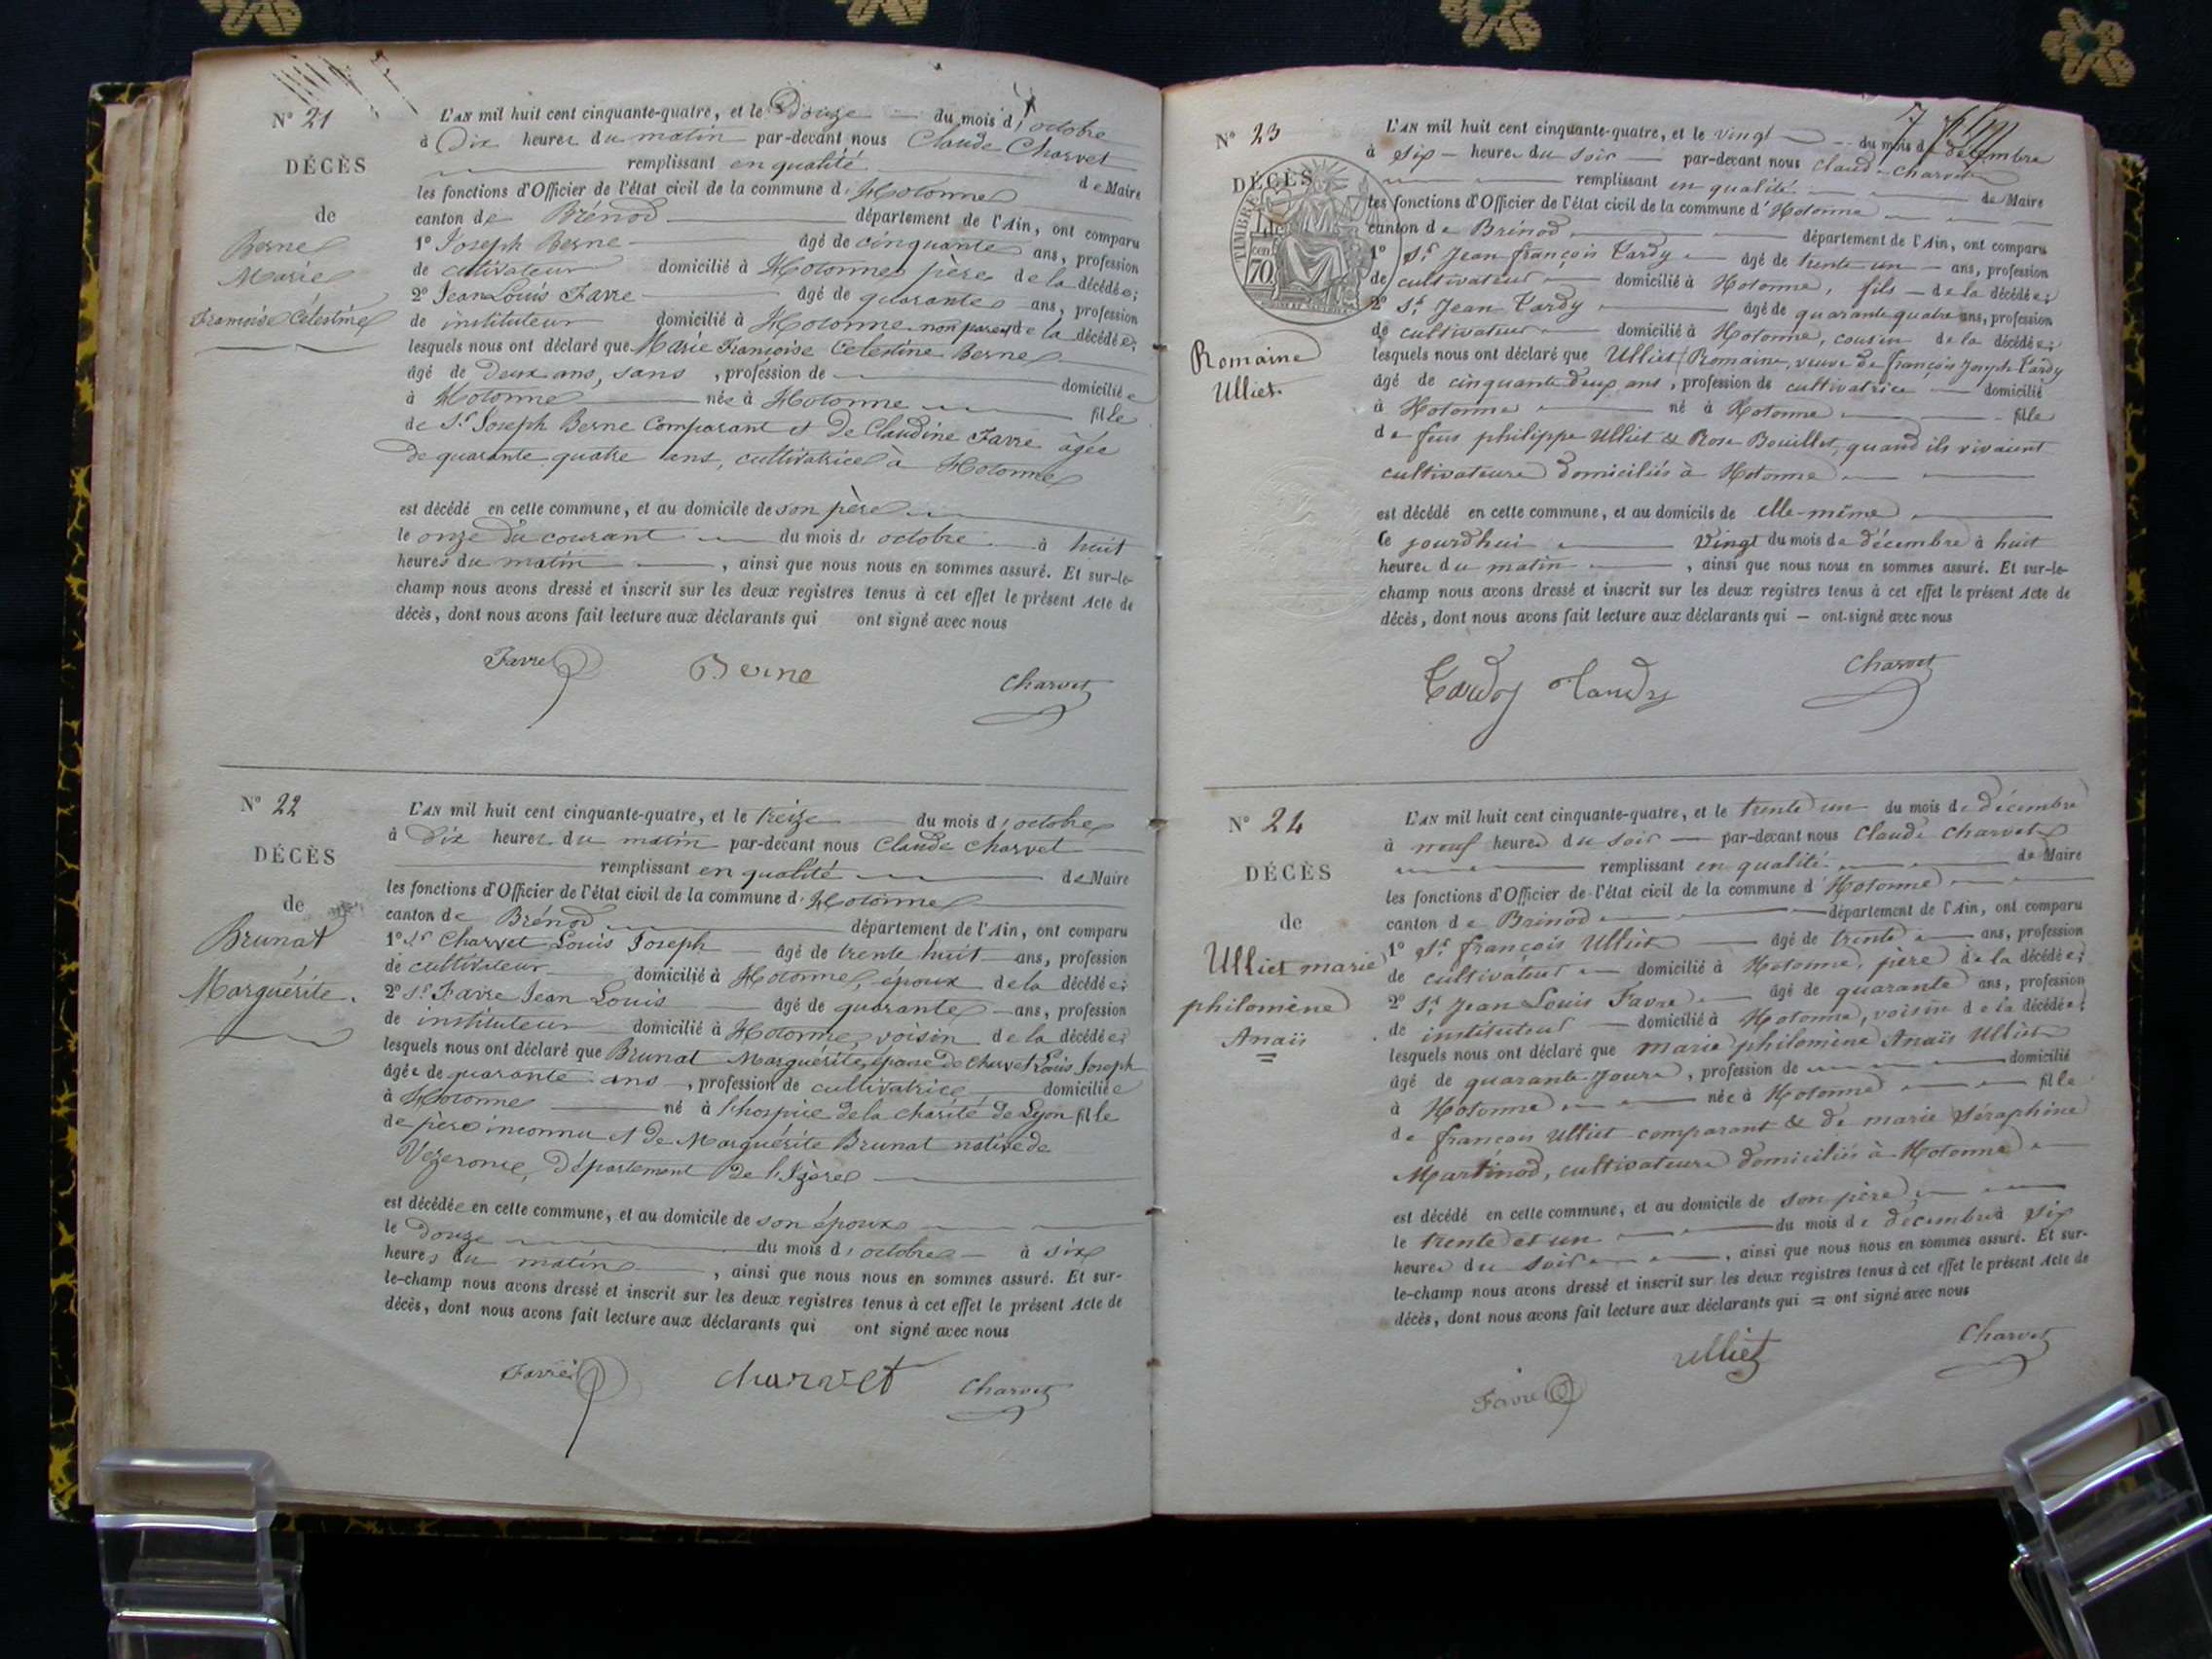 N° 21
DÉCÈS
de
Berne
Marie
Françoise Célestine
L'AN mil huit cent cinquante-quatre, et le Douze du mois d'octobre
à Dix heures du matin par-devant nous Claude Charvet
remplissant en qualité de Maire
les fonctions d'Officier de l'état civil de la commune d'Hotonne
canton de Brénod département de l'Ain, ont comparu
1° Joseph Berne âgé de cinquante ans, profession
de cultivateur domicilié à Hotonne, père de la décédée;
2° Jean Louis Favre âgé de quarante ans, profession
de instituteur domicilié à Hotonne non parent de la décédée;
lesquels nous ont déclaré que Marie Françoise Celestine Berne
âgé de Deux ans, sans , profession de domiciliée
à Hotonne née à Hotonne fille
de Sr Joseph Berne Comparant et De Claudine Favre âgée
De quarante quatre ans, cultivatrice à Hotonne
est décédé en cette commune, et au domicile de son père
le onze du courant du mois d'octobre à huit
heures du matin , ainsi que nous nous en sommes assuré. Et sur-le-
champ nous avons dressé et inscrit sur les deux registres tenus à cet effet le présent Acte de
décès, dont nous avons fait lecture aux déclarants qui ont signé avec nous
Favre Berne Charvet
N° 22
DÉCÈS
de
Brunat
Marguérite.
L'AN mil huit cent cinquante-quatre, et le treize du mois d'octobre
à Dix heures du matin par-devant nous Claude Charvet
remplissant en qualité de Maire
les fonctions d'Officier de l'état civil de la commune d'Hotonne
canton de Brénod département de l'Ain, ont comparu
1° Sr Charvet Louis Joseph âgé de trente huit ans, profession
de cultivateur domicilié à Hotonne, époux de la décédée;
2° Sr Favre Jean Louis âgé de quarante ans, profession
de instituteur domicilié à Hotonne, voisin de la décédée;
lesquels nous ont déclaré que Brunat Marguérite, épouse de Charvet Louis Joseph
âgée de quarante ans , profession de cultivatrice domiciliée
à Hotonne né à l'hospice de la charité de Lyon fille
de père inconnu et De Marguérite Brunat native de
Vezeronce, Département De l'Izère
est décédée en cette commune, et au domicile de son époux
le Douze du mois d'octobre à six
heures du matin , ainsi que nous nous en sommes assuré. Et sur-
le-champ nous avons dressé et inscrit sur les deux registres tenus à cet effet le présent Acte de
décès, dont nous avons fait lecture aux déclarants qui ont signé avec nous
Favre charvet Charvet
N° 23
DÉCÈS
TIMBRE
70
Romaine
Ulliet.
L'AN mil huit cent cinquante-quatre, et le vingt du mois de décembre
à six heures du soir par-devant nous Claude Charvet
remplissant en qualité de Maire
les fonctions d'Officier de l'état civil de la commune d'Hotonne
canton de Brénod département de l'Ain, ont comparu
1° Sr Jean françois Tardy âgé de trente un ans, profession
de cultivateur domicilié à Hotonne, fils de la décédée;
2° Sr Jean Tardy âgé de quarante quatre ans, profession
de cultivateur domicilié à Hotonne, cousin de la décédée;
lesquels nous ont déclaré que Ulliet Romaine, veuve de françois Joseph Tardy
âgé de cinquante deux ans , profession de cultivatrice domicilié
à Hotonne né à Hotonne fille
de feus philippe Ulliet & Rose Bouillet, quand ils vivaient
cultivateurs domiciliés à Hotonne
est décédé en cette commune, et au domicile de elle-même
Ce jourdhui Vingt du mois de décembre à huit
heures du matin , ainsi que nous nous en sommes assuré. Et sur-le-
champ nous avons dressé et inscrit sur les deux registres tenus à cet effet le présent Acte de
décès, dont nous avons fait lecture aux déclarants qui – ont signé avec nous
Tardy Tardy Charvet
N° 24
DÉCÈS
de
Ulliet marie
philomène
Anaïs
L'AN mil huit cent cinquante-quatre, et le trente un du mois de décembre
à neuf heures du soir par-devant nous Claude Charvet
remplissant en qualité de Maire
les fonctions d'Officier de l'état civil de la commune d'Hotonne
canton de Brénod département de l'Ain, ont comparu
1° Sr françois Ulliet âgé de trente ans, profession
de cultivateur domicilié à Hotonne, père de la décédée;
2° Sr Jean Louis Favre âgé de quarante ans, profession
de instituteur domicilié à Hotonne, voisin de la décédée;
lesquels nous ont déclaré que marie philomène Anaïs Ulliet
âgé de quarante Jours , profession de domicilié
à Hotonne née à Hotonne fille
de françois Ulliet comparant & de marie Séraphine
Martinod, cultivateurs domiciliés à Hotonne
est décédé en cette commune, et au domicile de son père
le trente et un du mois de décembre à six
heures du soir , ainsi que nous nous en sommes assuré. Et sur-
le-champ nous avons dressé et inscrit sur les deux registres tenus à cet effet le présent Acte de
décès, dont nous avons fait lecture aux déclarants qui = ont signé avec nous
Favre ulliet Charvet